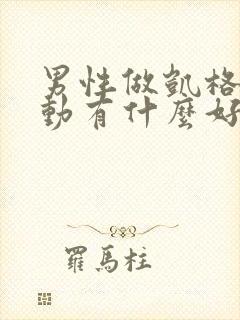 男性做凱格
動有什麼好
羅馬柱